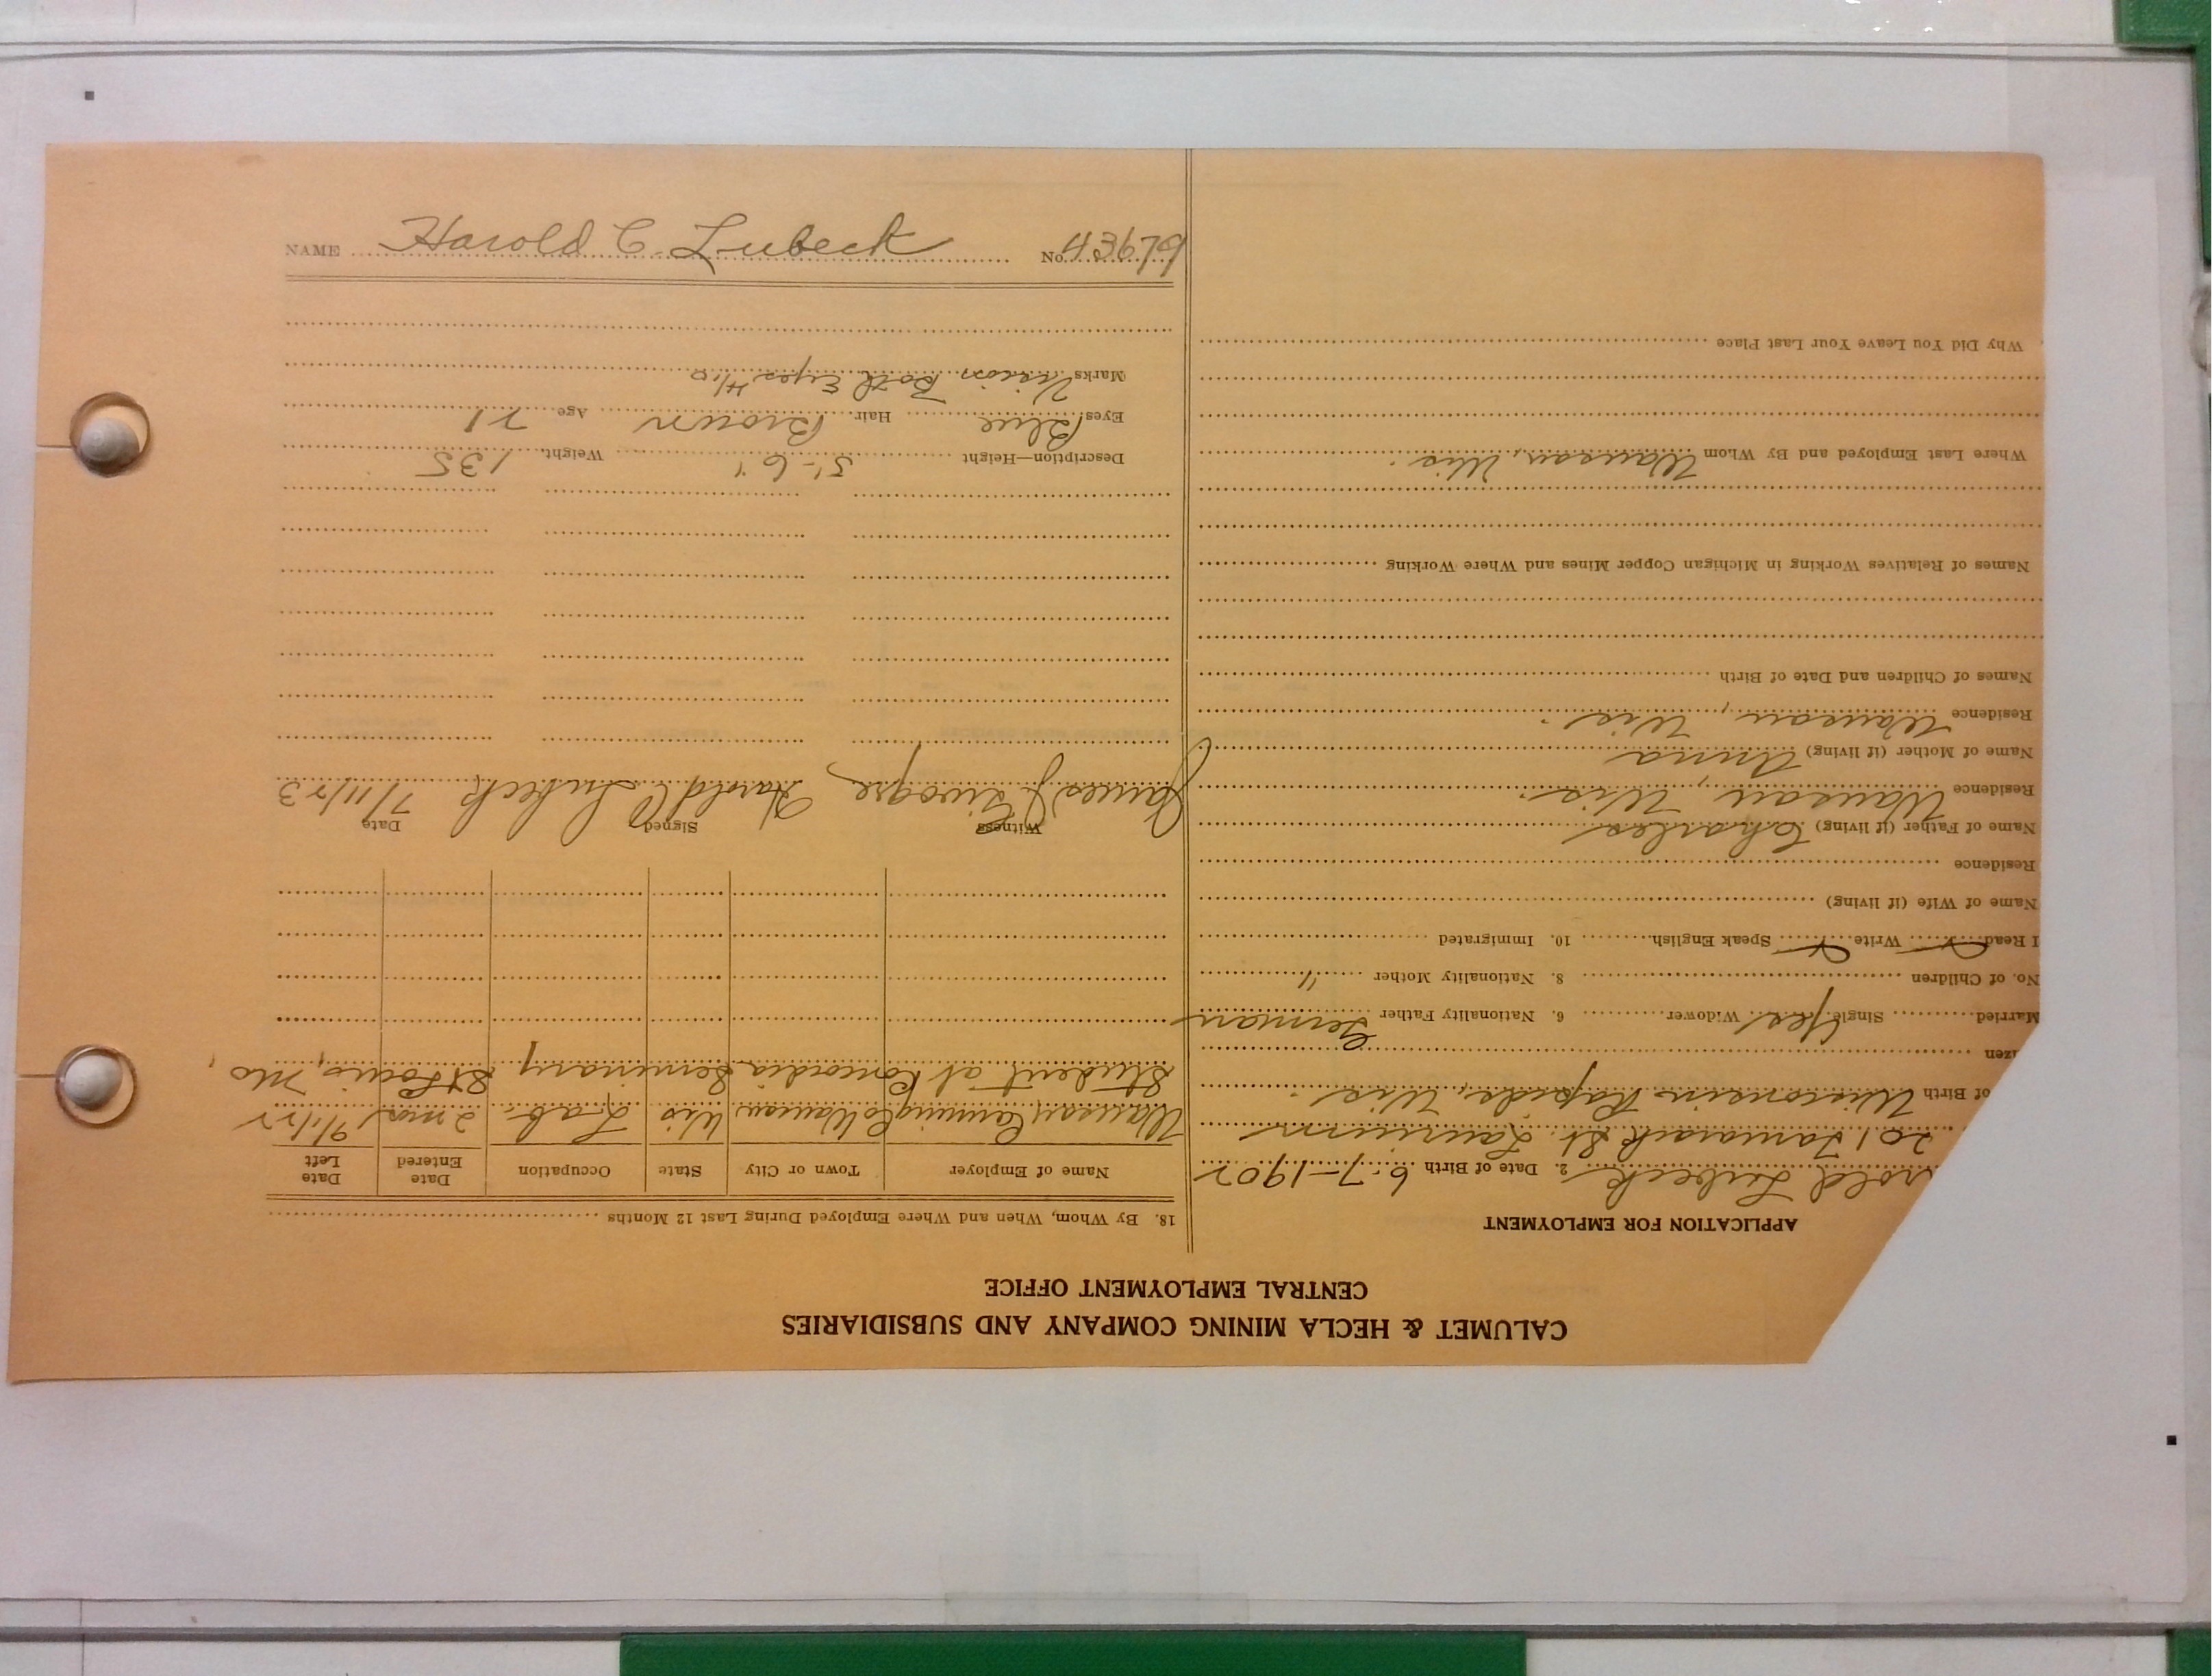 CALUMET & HECLA MINING COMPANY AND SUBSIDIARIES
CENTRAL EMPLOYMENT OFFICE
APPLICATION FOR EMPLOYMENT
rold Lubeck 2. Date of Birth 6-7-1902
201 Tamarack St. Laurium
of Birth Wisconsin Rapids, Wis.
izen
Married Single Yes Widower 6. Nationality Father German
No. of Children 8. Nationality Mother "
I Read Write Speak English 10. Immigrated
Name of Wife (if living)
Residence
Name of Father (if living) Charles
Residence Wausau, Wis.
Name of Mother (if living) Anna
Residence Wausau, Wis.
Names of Children and Date of Birth
Names of Relatives Working in Michigan Copper Mines and Where Working
Where Last Employed and By Whom Wausau, Wis.
Why Did You Leave Your Last Place
18. By Whom, When and Where Employed During Last 12 Months
Name of Employer Town or City State Occupation Date Entered Date Left
Wausau Canning Co Wausau Wis Lab. 2 mos 9/1/22
Student at Concordia Seminary St Louis, Mo,
Witness Signed Date
James J. Harold C. Lubeck 7/11/23
Description—Height 5'-6" Weight 135
Eyes Blue Hair Brown Age 21
Marks Vision Both Eyes 4/10
NAME Harold C. Lubeck No. 43679